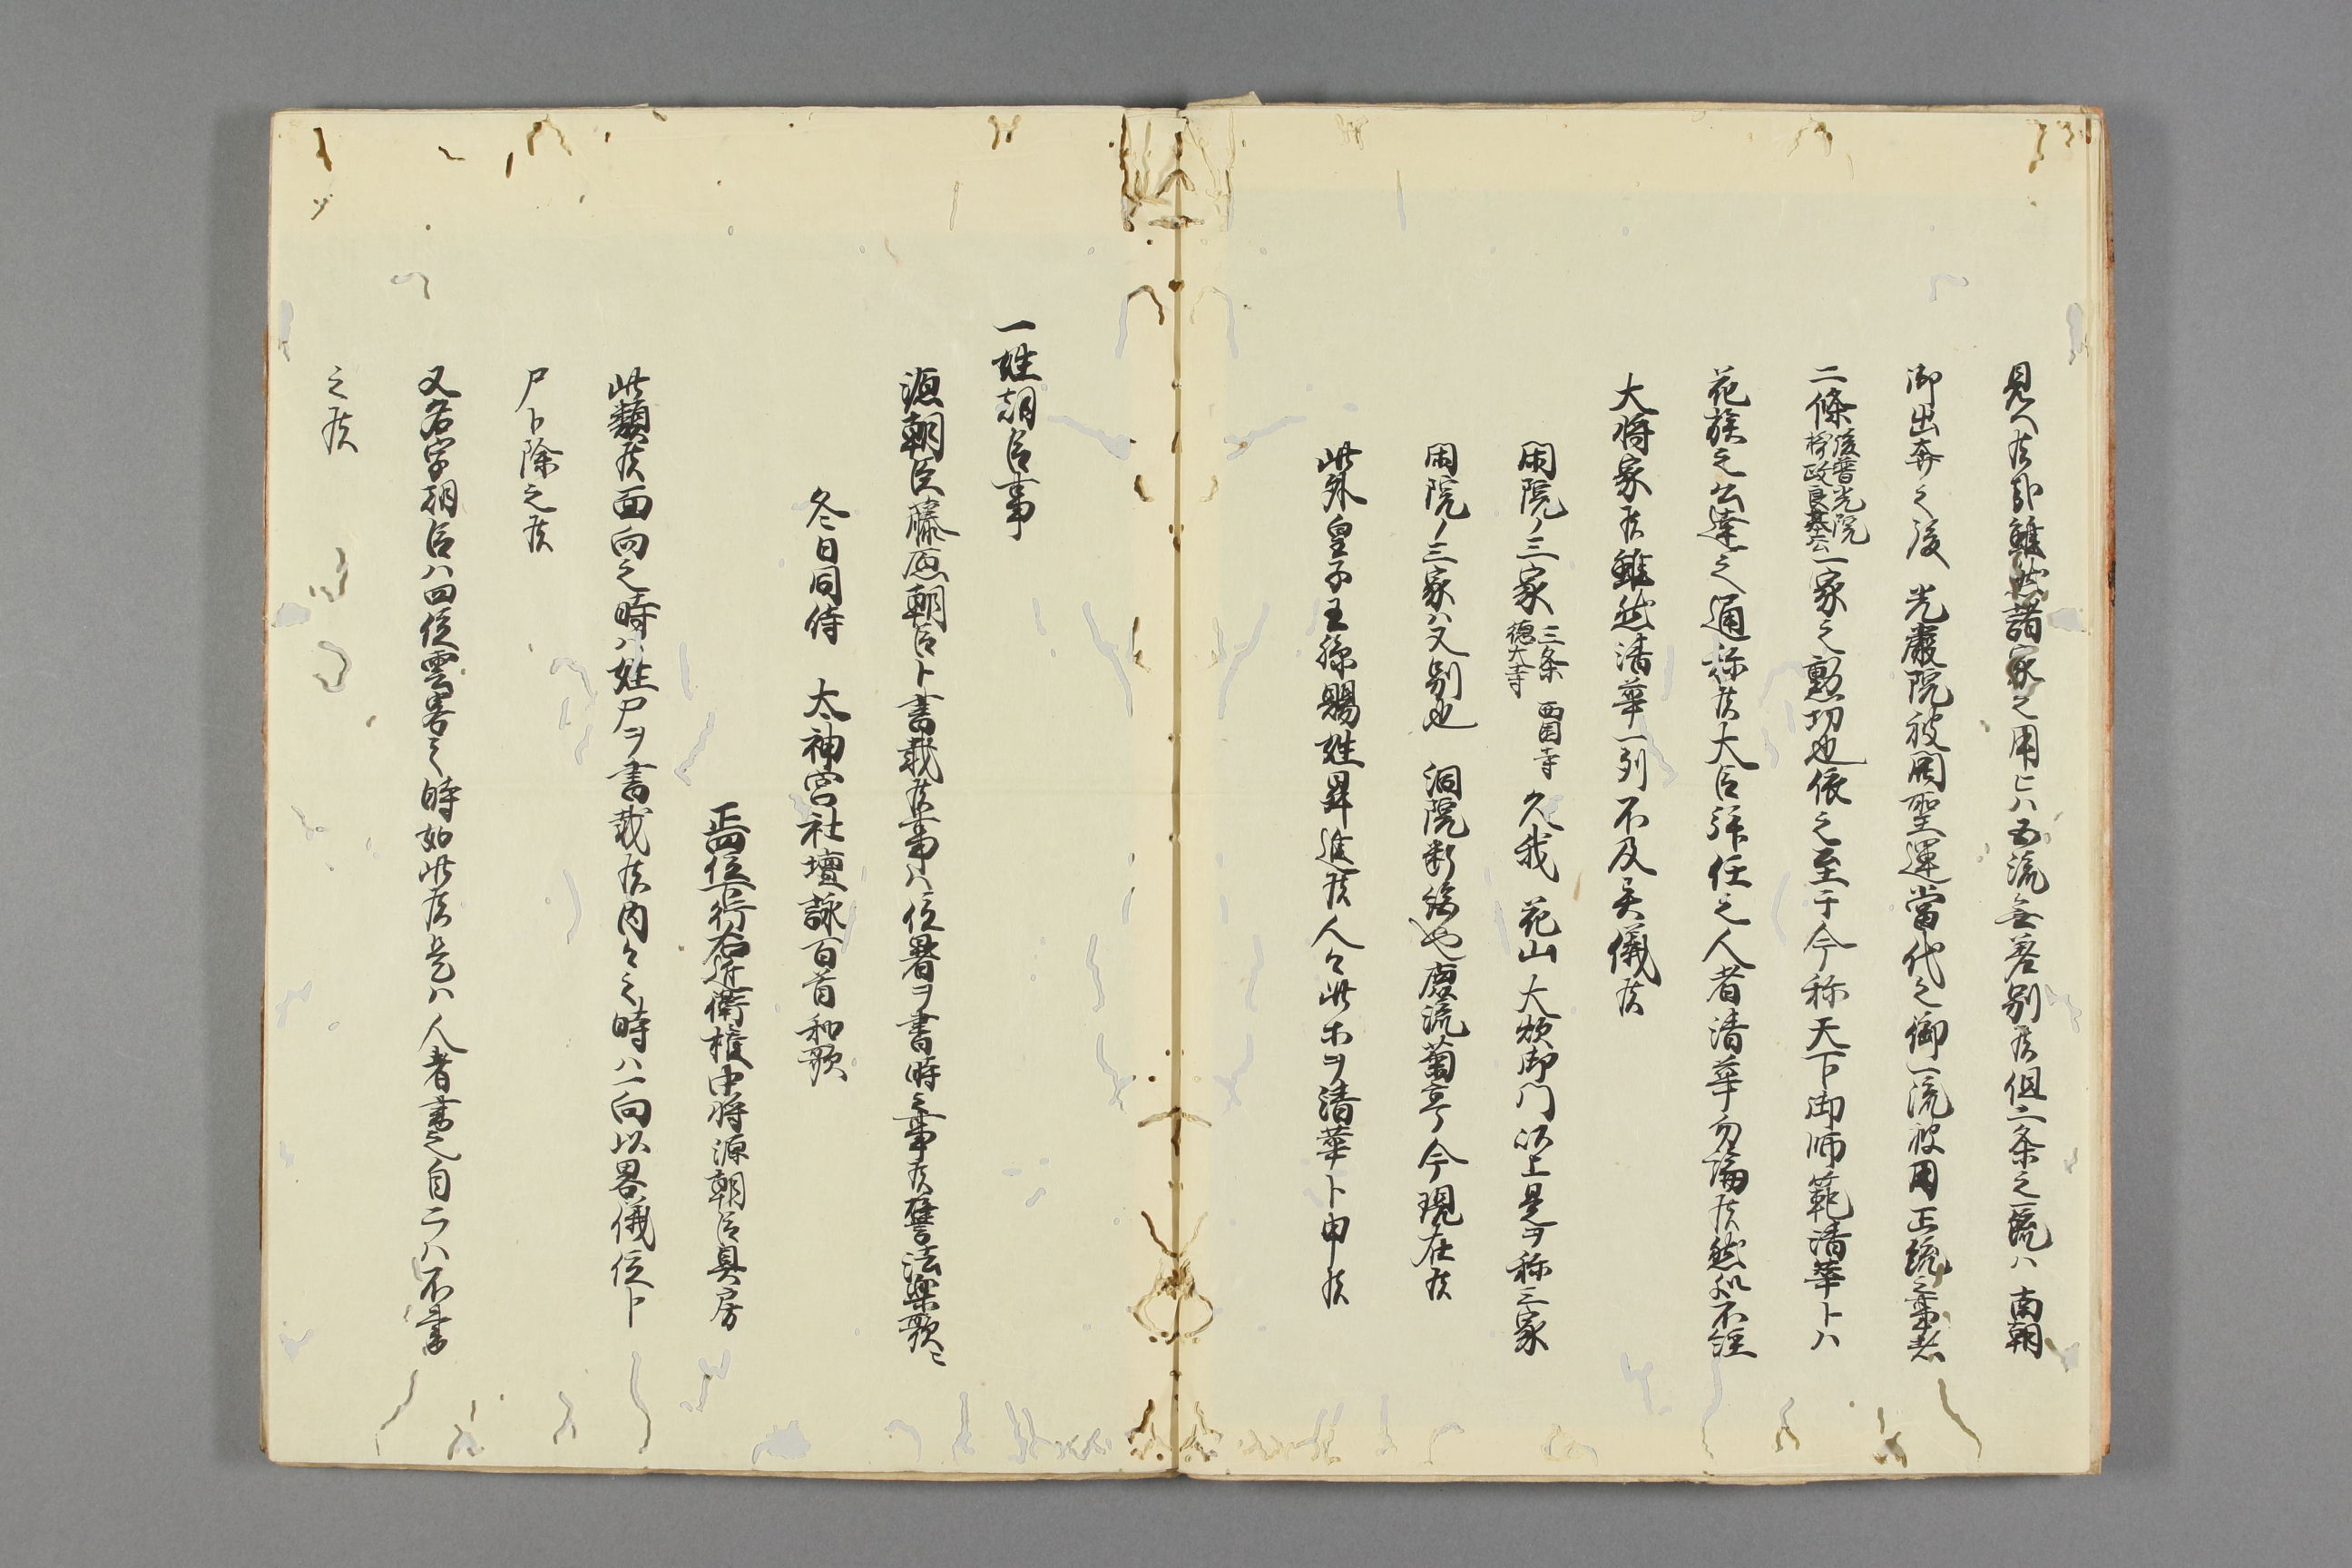 見ヘ候歟雖然諸家之用ヒハ五流無差別候但二条之一流ハ南朝
御出奔之後　光嚴院被開聖運當代之御一流被用正統之事者
二條後普光院摂政良基公一家之勲功也依之至于今称天下御師範清華トハ
花族之公達之通称候大臣并任之人者清華勿論候然処不経
大将家候雖然清華一列不及異儀候
閑院ノ三家三条　西園寺徳大寺　久我　花山　大炊御門以上是ヲ称三家
閑院ノ三家ハ又別也　洞院断絶也庶流菊亭今現在候
此外皇子王孫賜姓昇進候人々此等ヲ清華ト申候
一姓朝臣事
源朝臣藤原朝臣ト書載候事ハ位署ヲ書時之事候譬法楽歌ニ
冬日同侍　太神宮社壇詠百首和歌
正四位下行右近衛権中将源朝臣具房
此類候面向之時ハ姓尸ヲ書載候内々之時ハ一向以畧儀位ト
尸ト除之候
又名字朝臣ハ四位雲客之時如此候是ハ人者書之自ラハ不書
之候